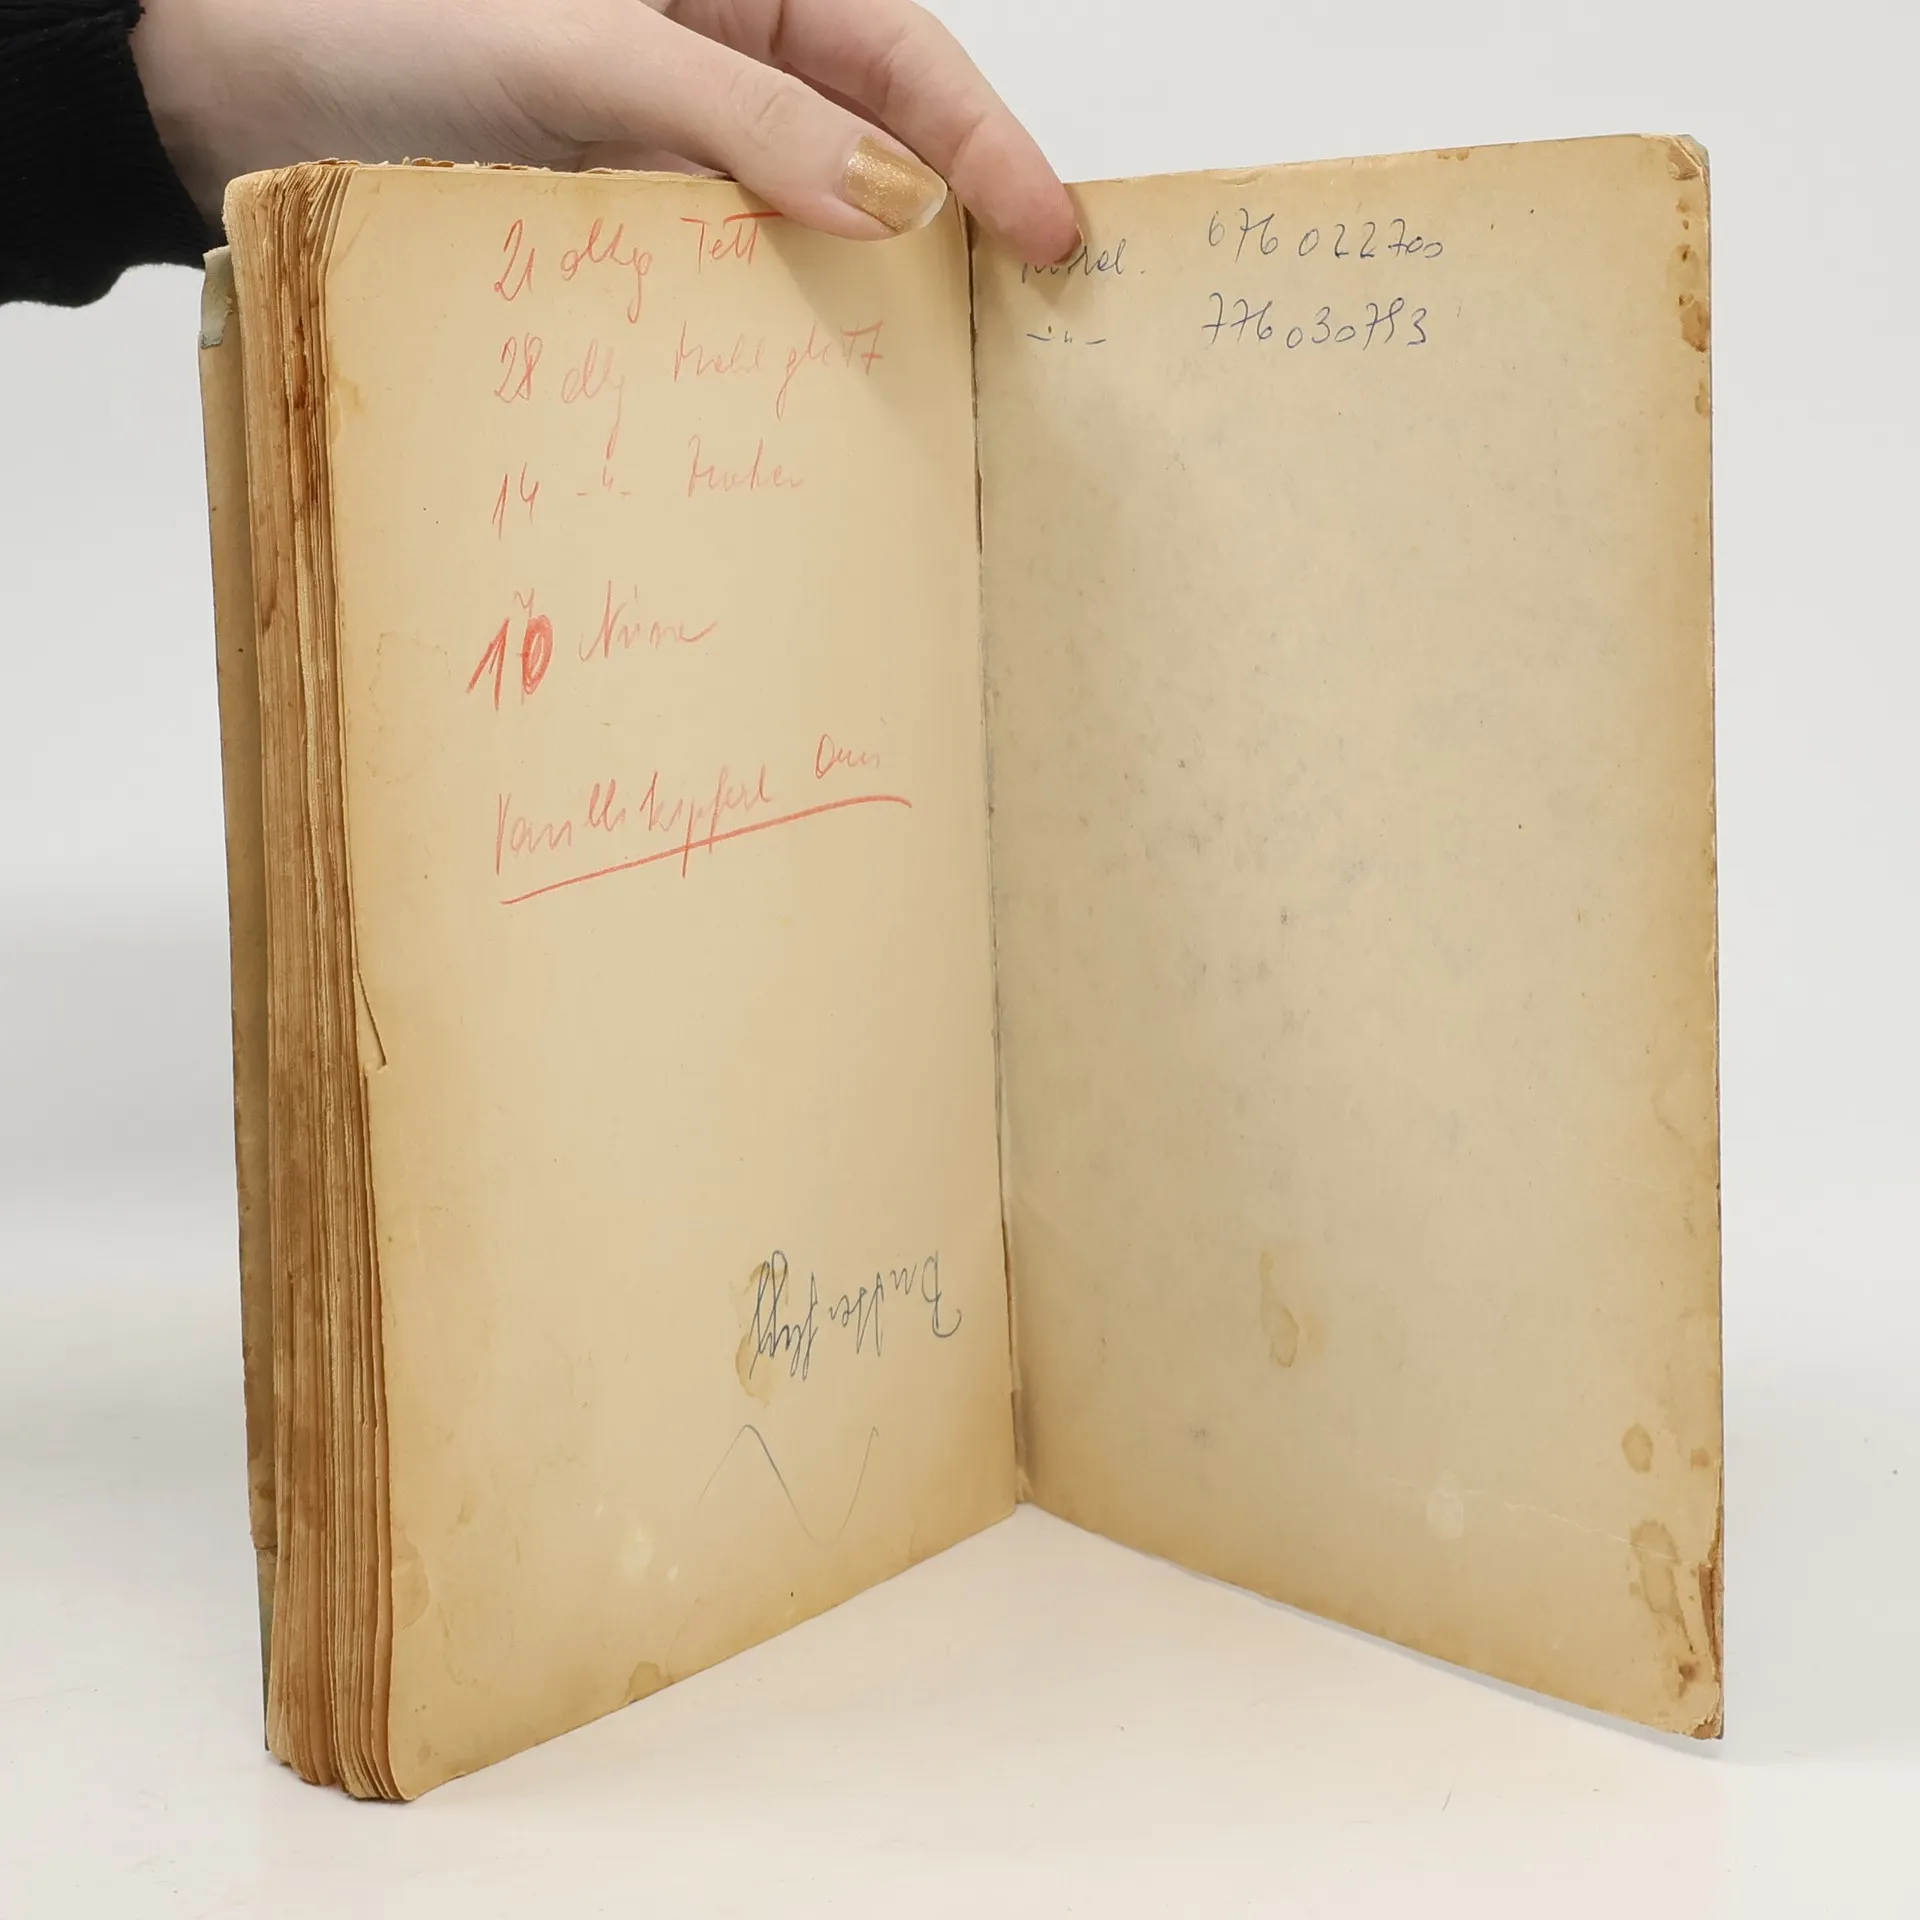 21 dkg Fett
28 dkg Mehl glatt
14 -"- Zucker
10 Nüsse
Vanillekipferl Omi
Butterhilfe
676 022700
-"- 776030793